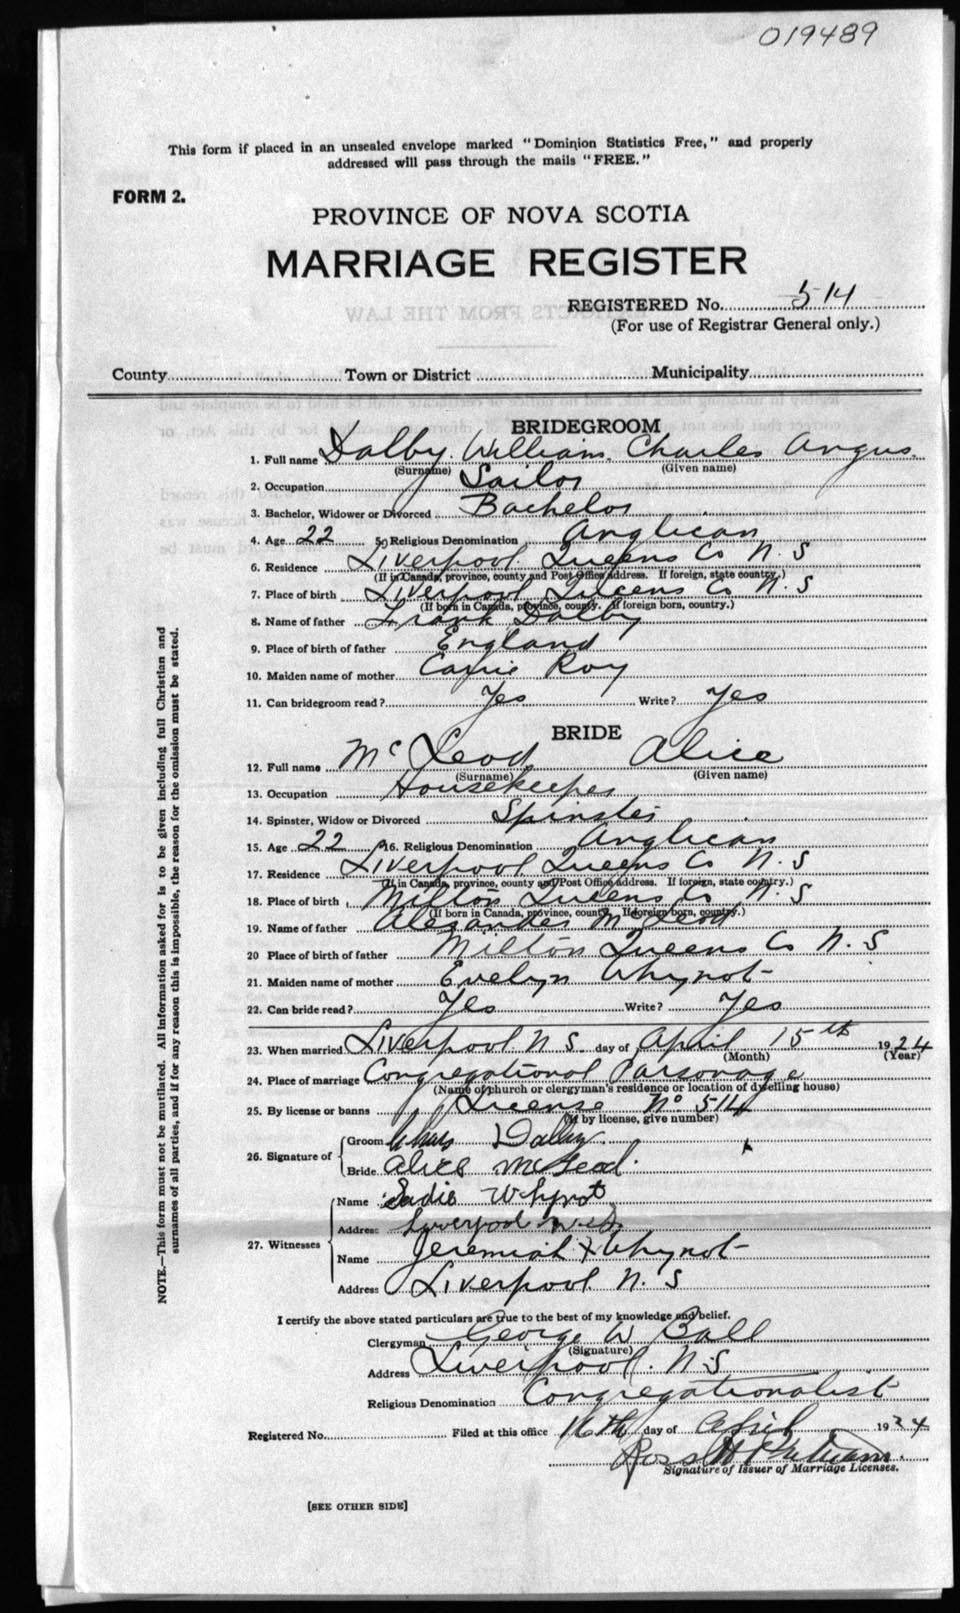 019489
This form if placed in an unsealed envelope marked "Dominion Statistics Free," and properly
addressed will pass through the mails "FREE."
FORM 2.
PROVINCE OF NOVA SCOTIA
MARRIAGE REGISTER
REGISTERED No. 514
(For use of Registrar General only.)
County Town or District Municipality
BRIDEGROOM
1. Full name Dalby. William. Charles Angus.
(Surname) (Given name)
2. Occupation Sailor
3. Bachelor, Widower or Divorced Bachelor
4. Age 22 5. Religious Denomination Anglican
6. Residence Liverpool. Queens Co N. S
(If in Canada, province, county and Post Office address. If foreign, state country.)
7. Place of birth Liverpool Queens Co N. S
(If born in Canada, province, county. If foreign born, country.)
8. Name of father Frank Dalby
9. Place of birth of father England
10. Maiden name of mother Carrie Roy
11. Can bridegroom read? Yes Write? Yes
BRIDE
12. Full name McLeod Alice
(Surname) (Given name)
13. Occupation Housekeeper
14. Spinster, Widow or Divorced Spinster
15. Age 22 16. Religious Denomination Anglican
17. Residence Liverpool Queens Co N. S
(If in Canada, province, county and Post Office address. If foreign, state country.)
18. Place of birth Milton Queens Co N. S
(If born in Canada, province, county. If foreign born, country.)
19. Name of father Alexander McLeod
20 Place of birth of father Milton Queens Co N. S
21. Maiden name of mother Evelyn Whynot
22. Can bride read? Yes Write? Yes
23. When married Liverpool. N. S. day of April 15th 1924
(Month) (Year)
24. Place of marriage Congregational Parsonage
(Name of church or clergyman's residence or location of dwelling house)
25. By license or banns License No 514
(If by license, give number)
26. Signature of
Groom Chas Dalby.
Bride Alice McLeod.
27. Witnesses
Name Sadie Whynot
Address Liverpool
Name Jeremiah Whynot
Address Liverpool. N. S
I certify the above stated particulars are true to the best of my knowledge and belief.
Clergyman George W Ball
(Signature)
Address Liverpool. N.S
Religious Denomination Congregationalist
Registered No. Filed at this office 16th day of April 1924
Signature of Issuer of Marriage Licenses.
[SEE OTHER SIDE]
NOTE.—This form must not be mutilated. All information asked for is to be given including full Christian and
surnames of all parties, and if for any reason this is impossible, the reason for the omission must be stated.